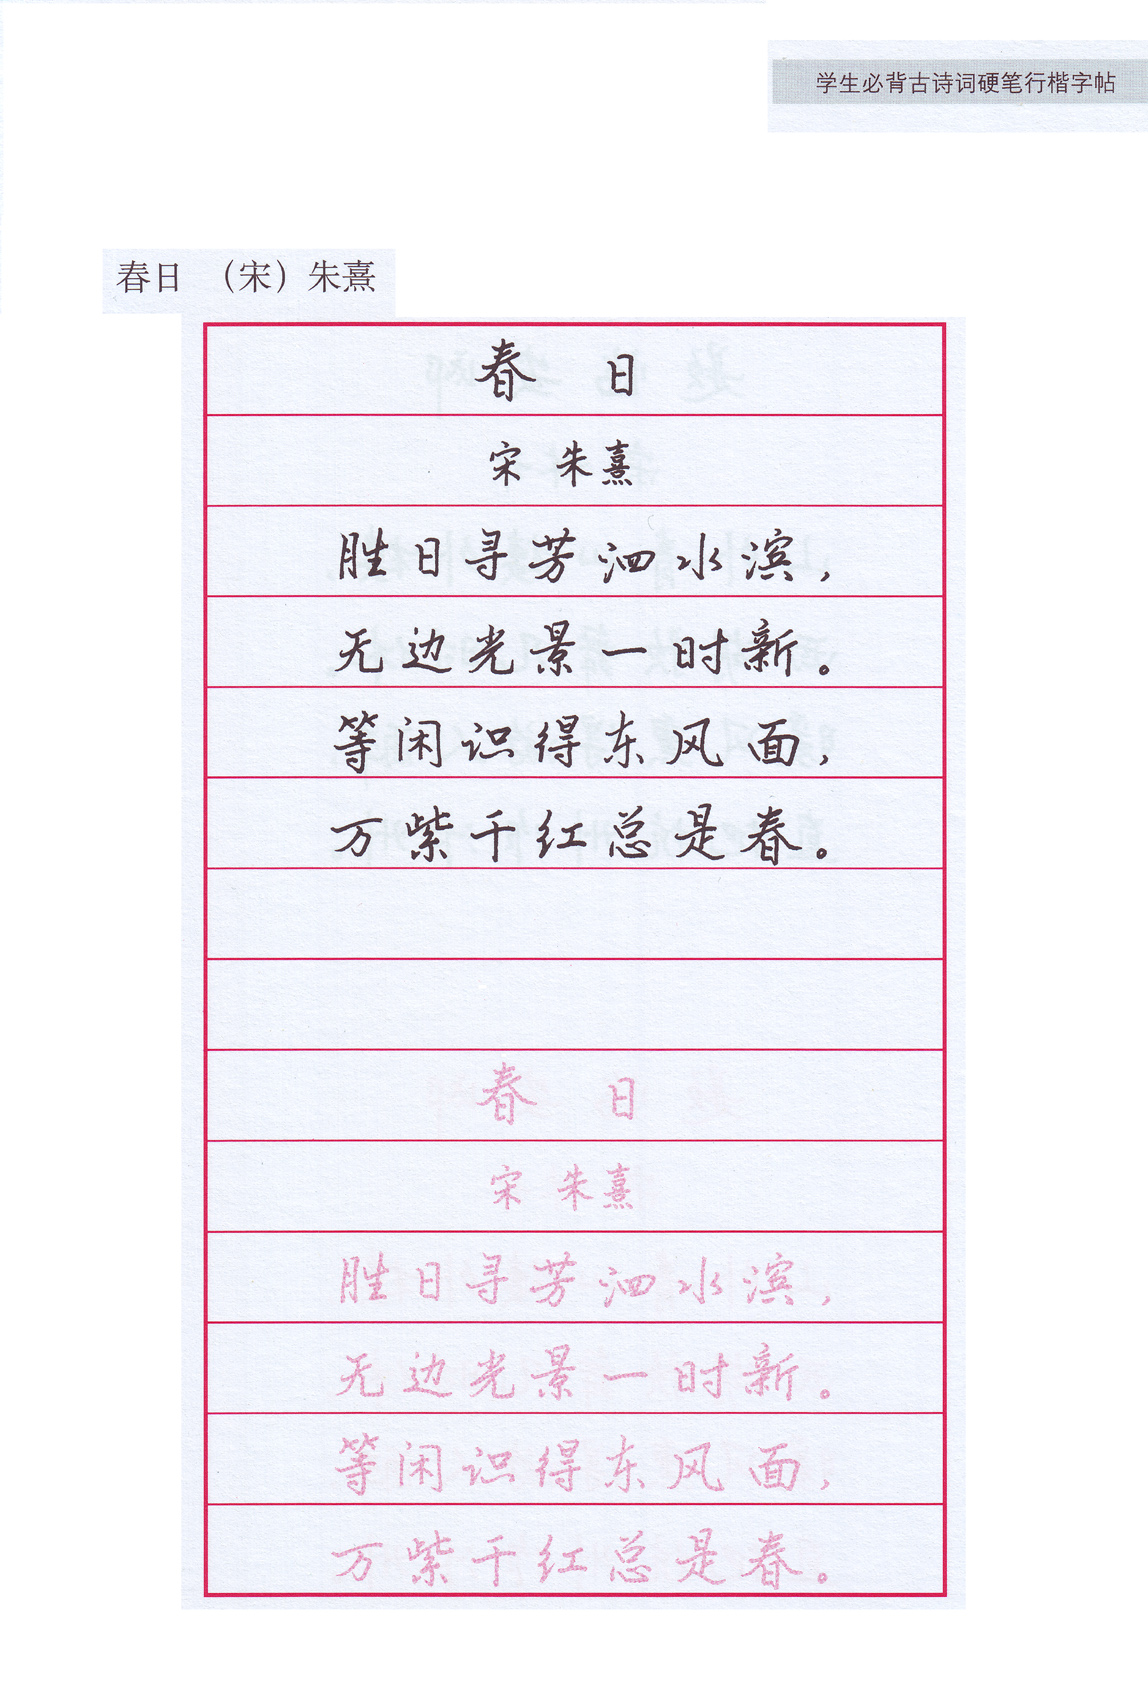 学生必背古诗词硬笔行楷字帖
春日 （宋）朱熹
春 日
宋 朱熹
胜日寻芳泗水滨，
无边光景一时新。
等闲识得东风面，
万紫千红总是春。
春 日
宋 朱熹
胜日寻芳泗水滨，
无边光景一时新。
等闲识得东风面，
万紫千红总是春。